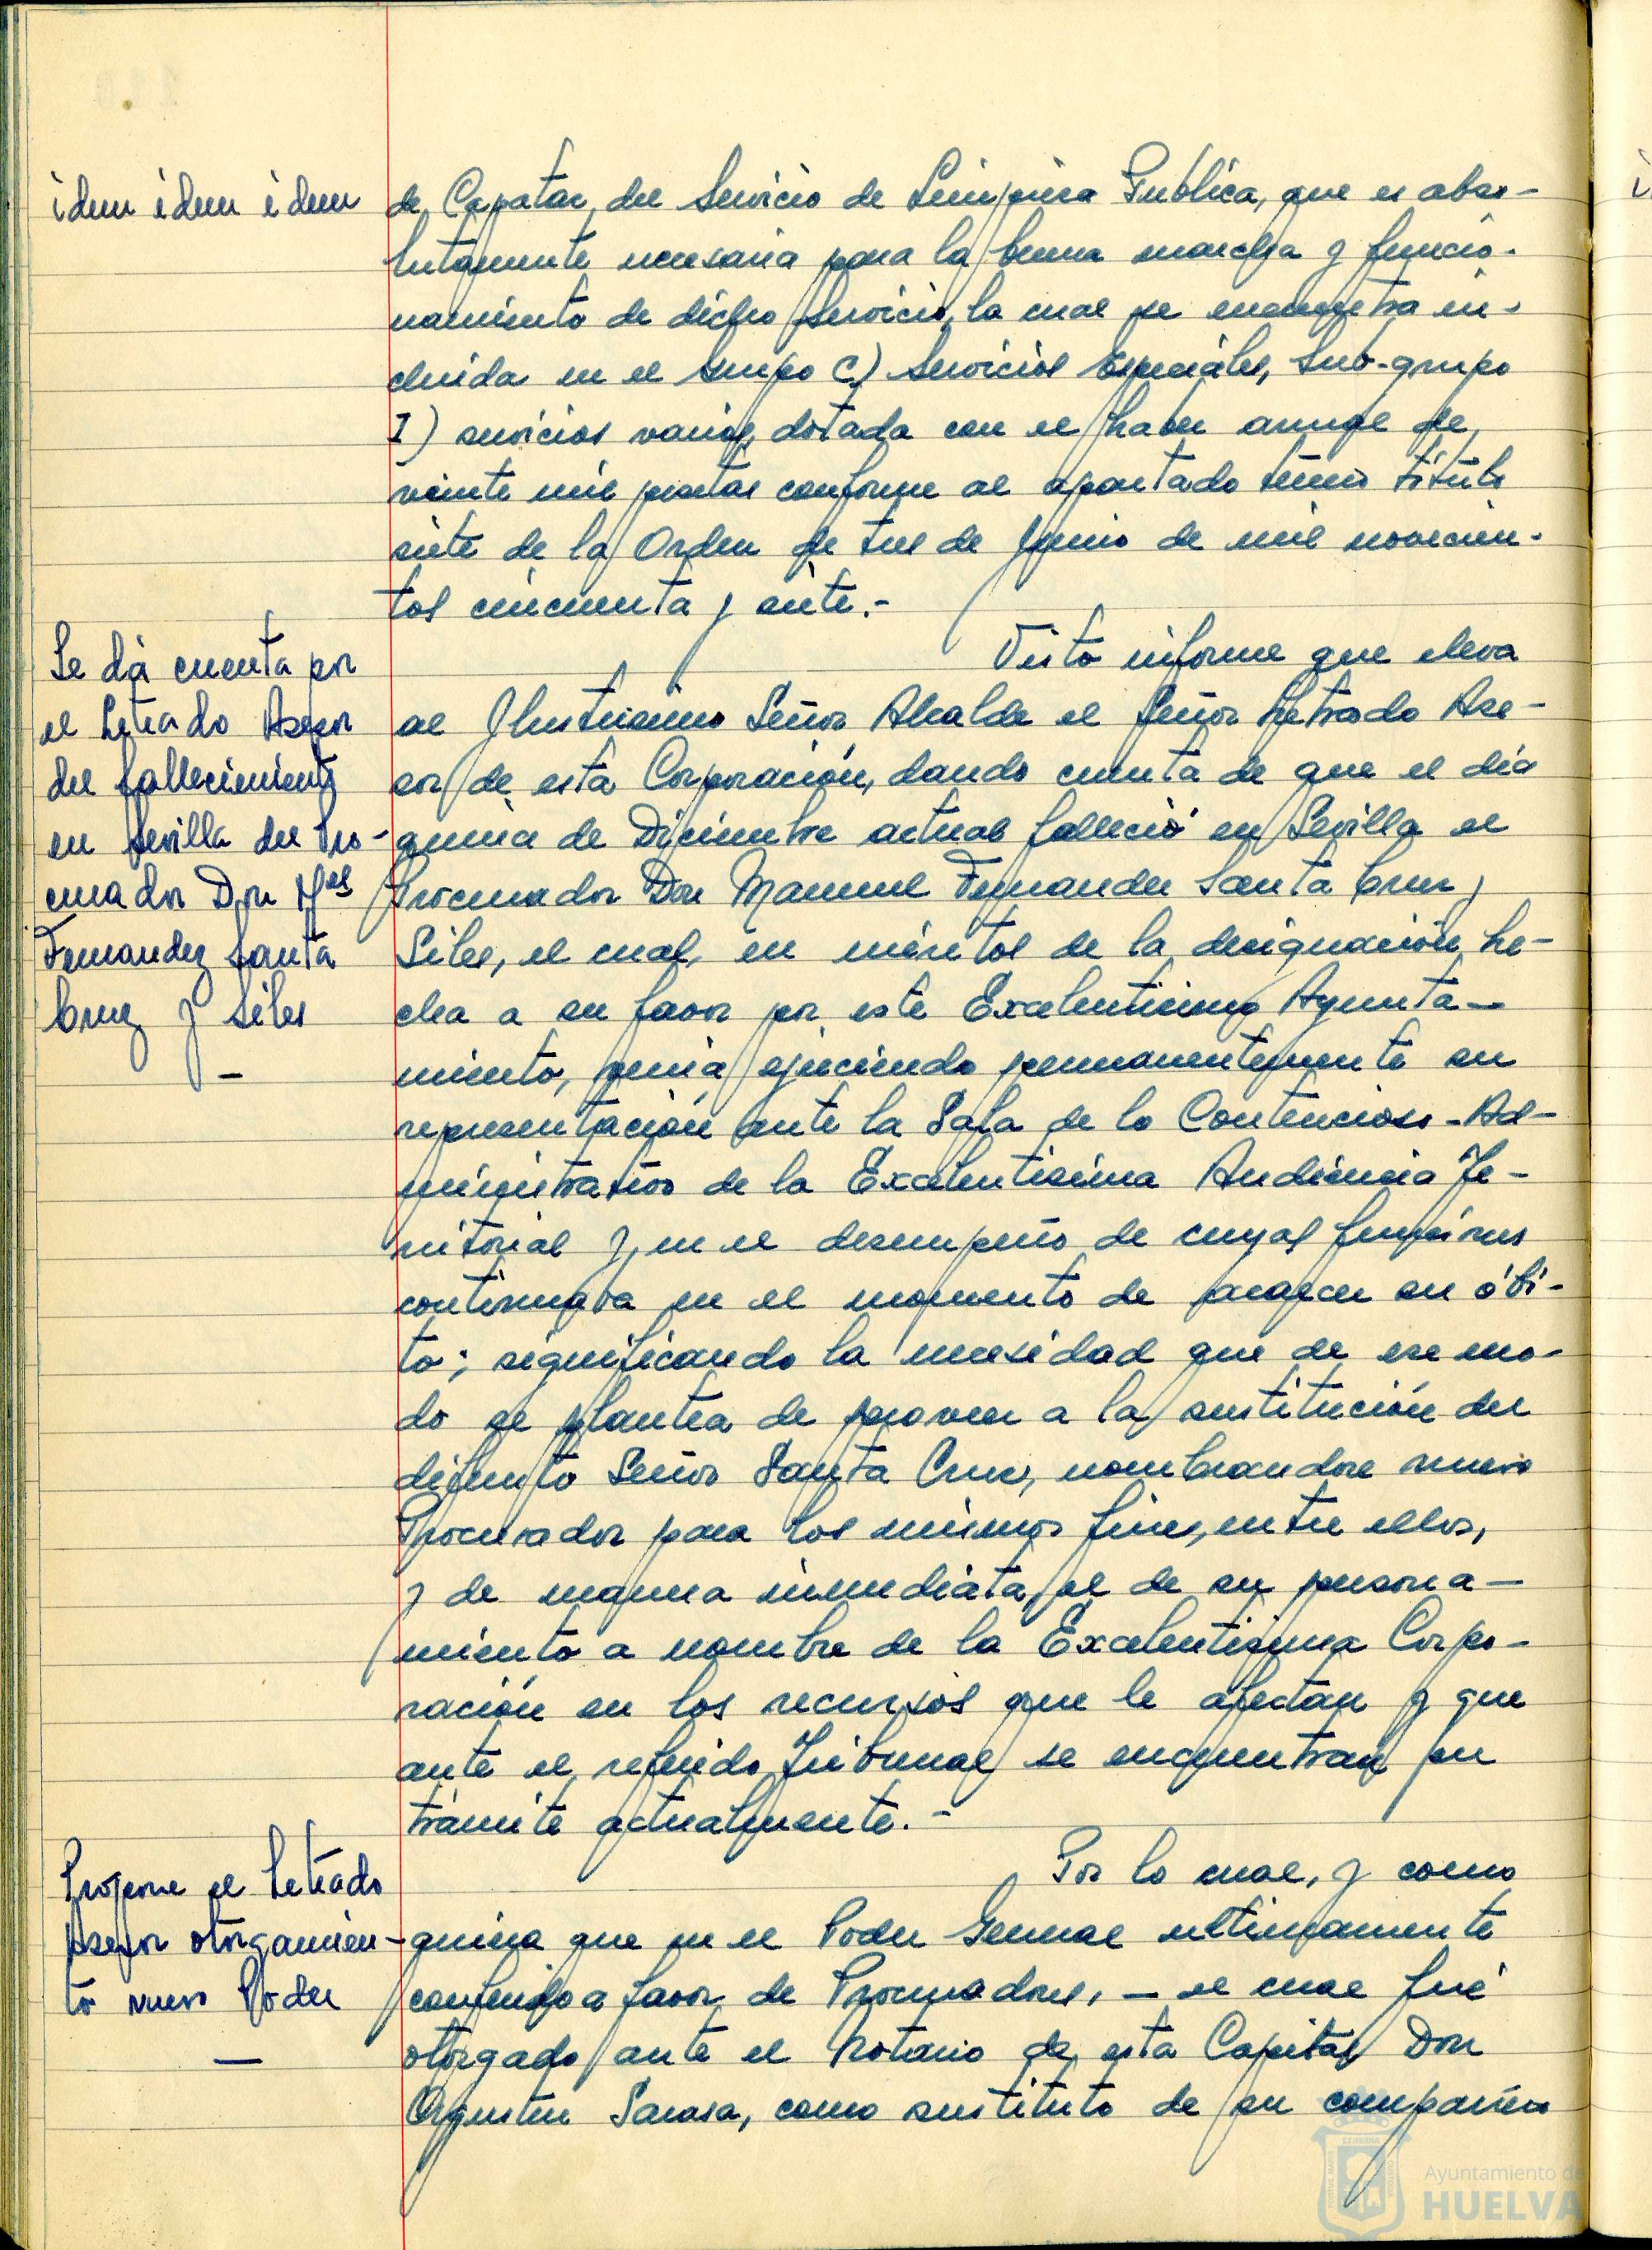 idem idem idem
de Capataz, del Servicio de Limpieza Publica, que es abso-
lutamente necesaria para la buena marcha y funcio-
namiento de dicho servicio, la cual se encuentra in-
cluida en el Grupo C) Servicios Especiales, Sub-grupo
I) servicios varios, dotada con el haber anual de
veinte mil pesetas conforme al apartado tercero título
siete de la Orden de tres de Junio de mil novecien-
tos cincuenta y siete.-
Se dá cuenta por
el Letrado Asesor
del fallecimiento
en Sevilla del Pro-
curador Don Mel
Fernandez Santa
Cruz y Siles
—
Visto informe que eleva
al Ilustrisimo Señor Alcalde el Señor Letrado Ase-
sor de esta Corporación, dando cuenta de que el día
quince de Diciembre actual falleció en Sevilla el
Procurador Don Manuel Fernandez Santa Cruz y
Siles, el cual, en méritos de la designación he-
cha a su favor por este Excelentisimo Ayunta-
miento, venia ejerciendo permanentemente su
representación ante la Sala de lo Contencioso-Ad-
ministrativo de la Excelentisima Audiencia Te-
rritorial y, en el desempeño de cuyas funciones
continuaba en el momento de acaecer su óbi-
to; significando la necesidad que de ese mo-
do se plantea de proveer a la sustitución del
difunto Señor Santa Cruz, nombrandose nuevo
Procurador para los mismos fines, entre ellos,
y de manera inmediata, el de su persona-
miento a nombre de la Excelentisima Corpo-
ración en los recursos que le afectan y que
ante el referido Tribunal se encuentran en
trámite actualmente.-
Propone el Letrado
Asesor otorgamien-
to nuevo Poder
—
Por lo cual, y como
quiera que en el Poder General ultimamente
conferido a favor de Procuradores, - el cual fué
otorgado ante el Notario de esta Capital Don
Agustin Sarasa, como sustituto de su compañero
Ayuntamiento de
HUELVA